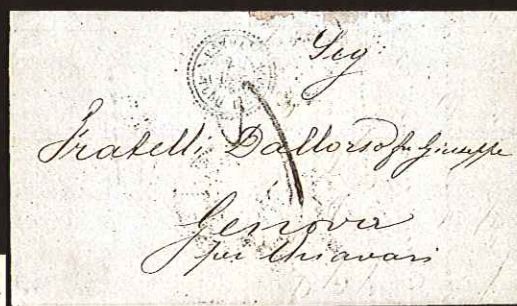 Sig
Fratelli Dallorso fu Giuseppe
Genova
per Chiavari